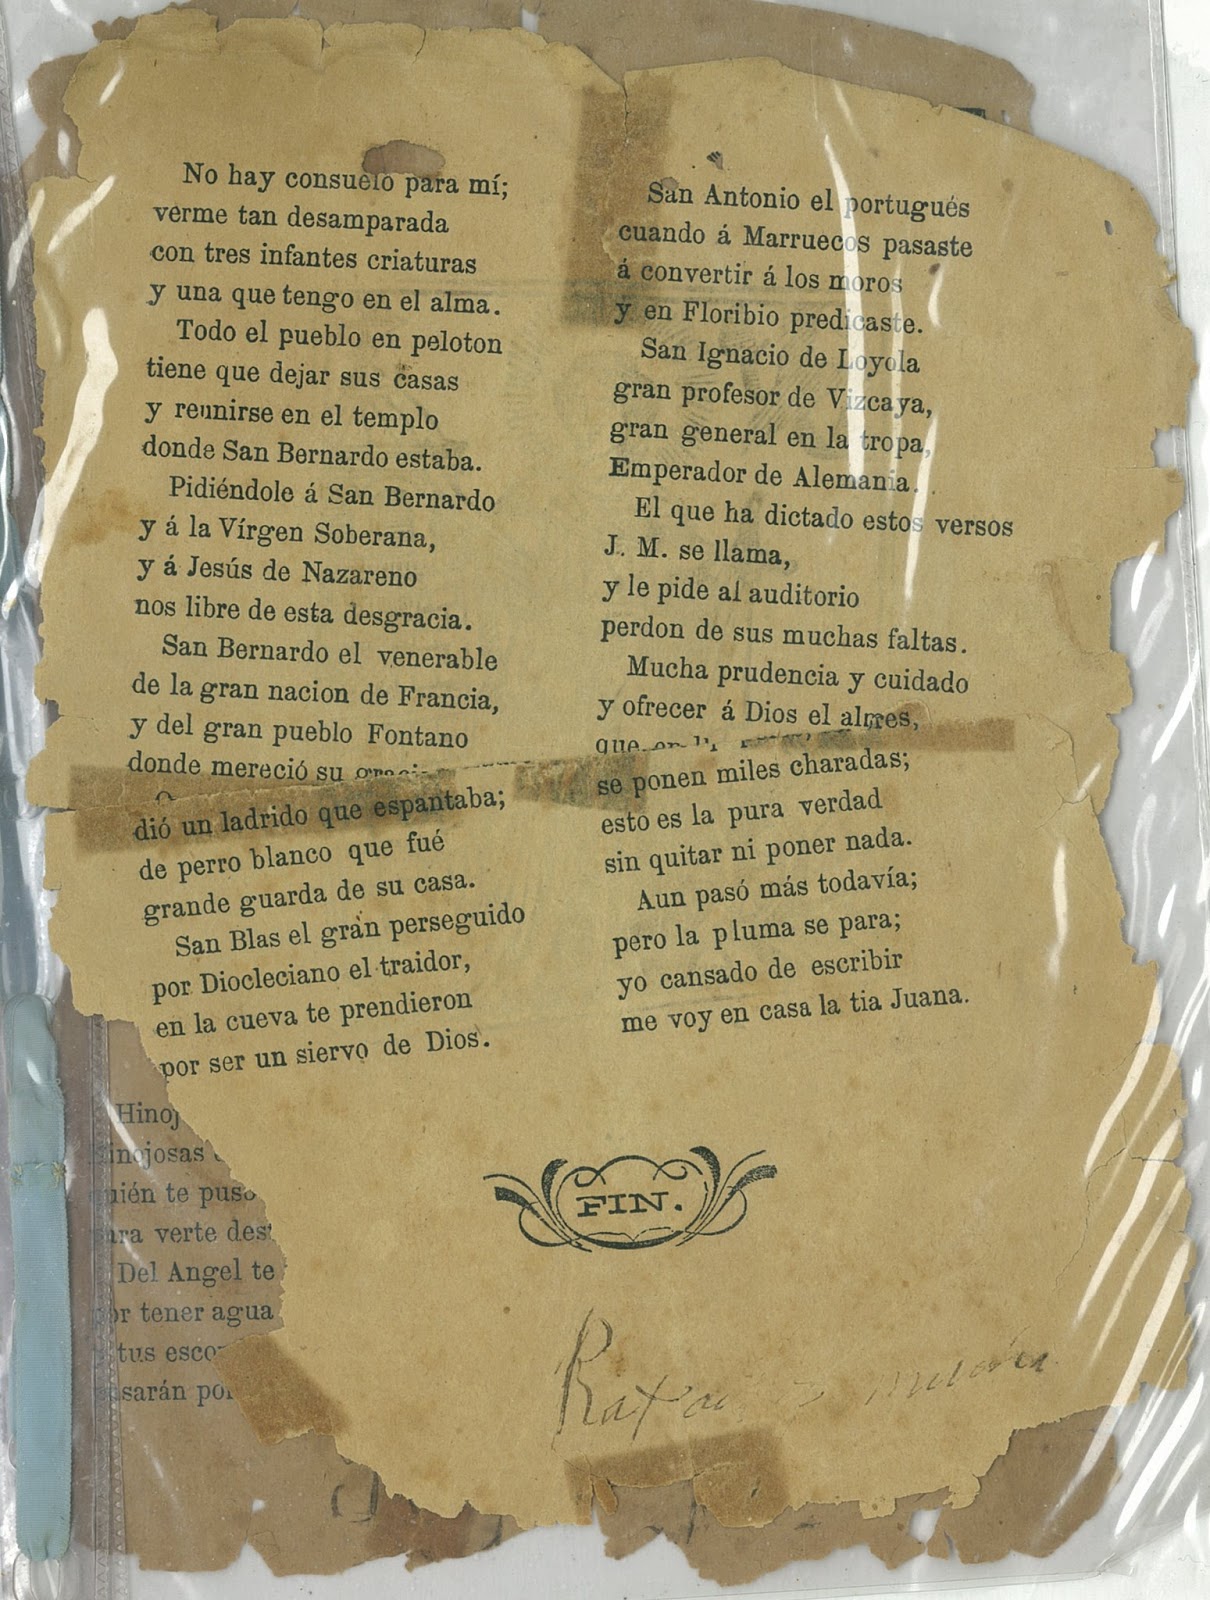 No hay consuelo para mí;
verme tan desamparada
con tres infantes criaturas
y una que tengo en el alma.
Todo el pueblo en peloton
tiene que dejar sus casas
y reunirse en el templo
donde San Bernardo estaba.
Pidiéndole á San Bernardo
y á la Vírgen Soberana,
y á Jesús de Nazareno
nos libre de esta desgracia.
San Bernardo el venerable
de la gran nacion de Francia,
y del gran pueblo Fontano
donde mereció su gracia
dió un ladrido que espantaba;
de perro blanco que fué
grande guarda de su casa.
San Blas el gran perseguido
por Diocleciano el traidor,
en la cueva te prendieron
por ser un siervo de Dios.
San Antonio el portugués
cuando á Marruecos pasaste
á convertir á los moros
y en Floribio predicaste.
San Ignacio de Loyola
gran profesor de Vizcaya,
gran general en la tropa,
Emperador de Alemania.
El que ha dictado estos versos
J. M. se llama,
y le pide al auditorio
perdon de sus muchas faltas.
Mucha prudencia y cuidado
y ofrecer á Dios el
que
se ponen miles charadas;
esto es la pura verdad
sin quitar ni poner nada.
Aun pasó más todavía;
pero la pluma se para;
yo cansado de escribir
me voy en casa la tia Juana.
FIN.
Hinoj
inojosas
uién te puso
ara verte des
Del Angel te
or tener agua
tus esco
sarán po